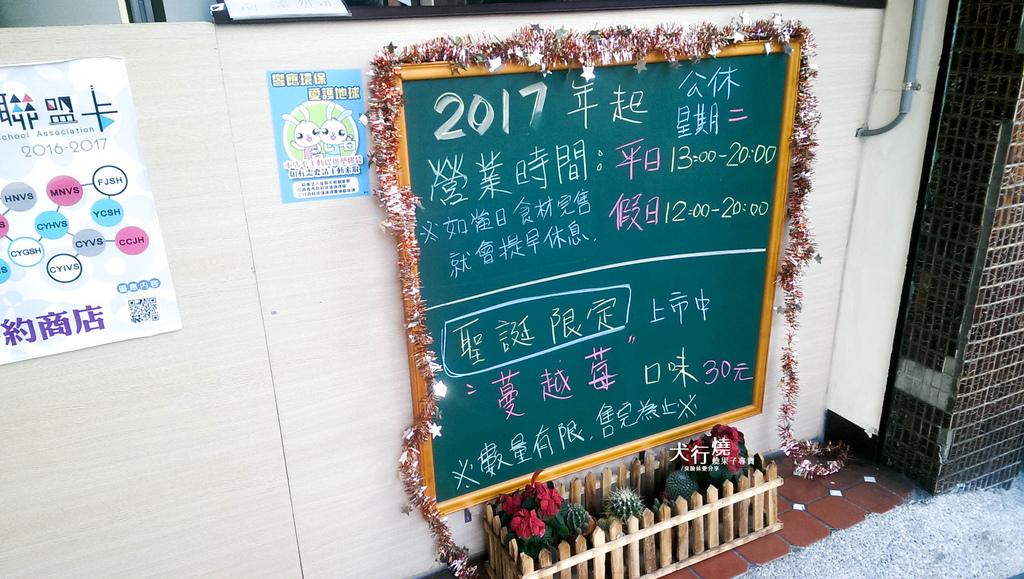 聯盟卡
School Association
2016-2017
HNVS
MNVS
FJSH
CYHVS
YCSH
CYGSH
CYVS
CCJH
CYIVS
優惠內容
約商店
響應環保
愛護地球
2017年起
公休
星期二
營業時間：平日13:00-20:00
假日12:00-20:00
※如當日食材完售
就會提早休息.
聖誕限定 上市中
"蔓越莓"口味30元
※數量有限.售完為止※
犬行燒
燒果子專賣